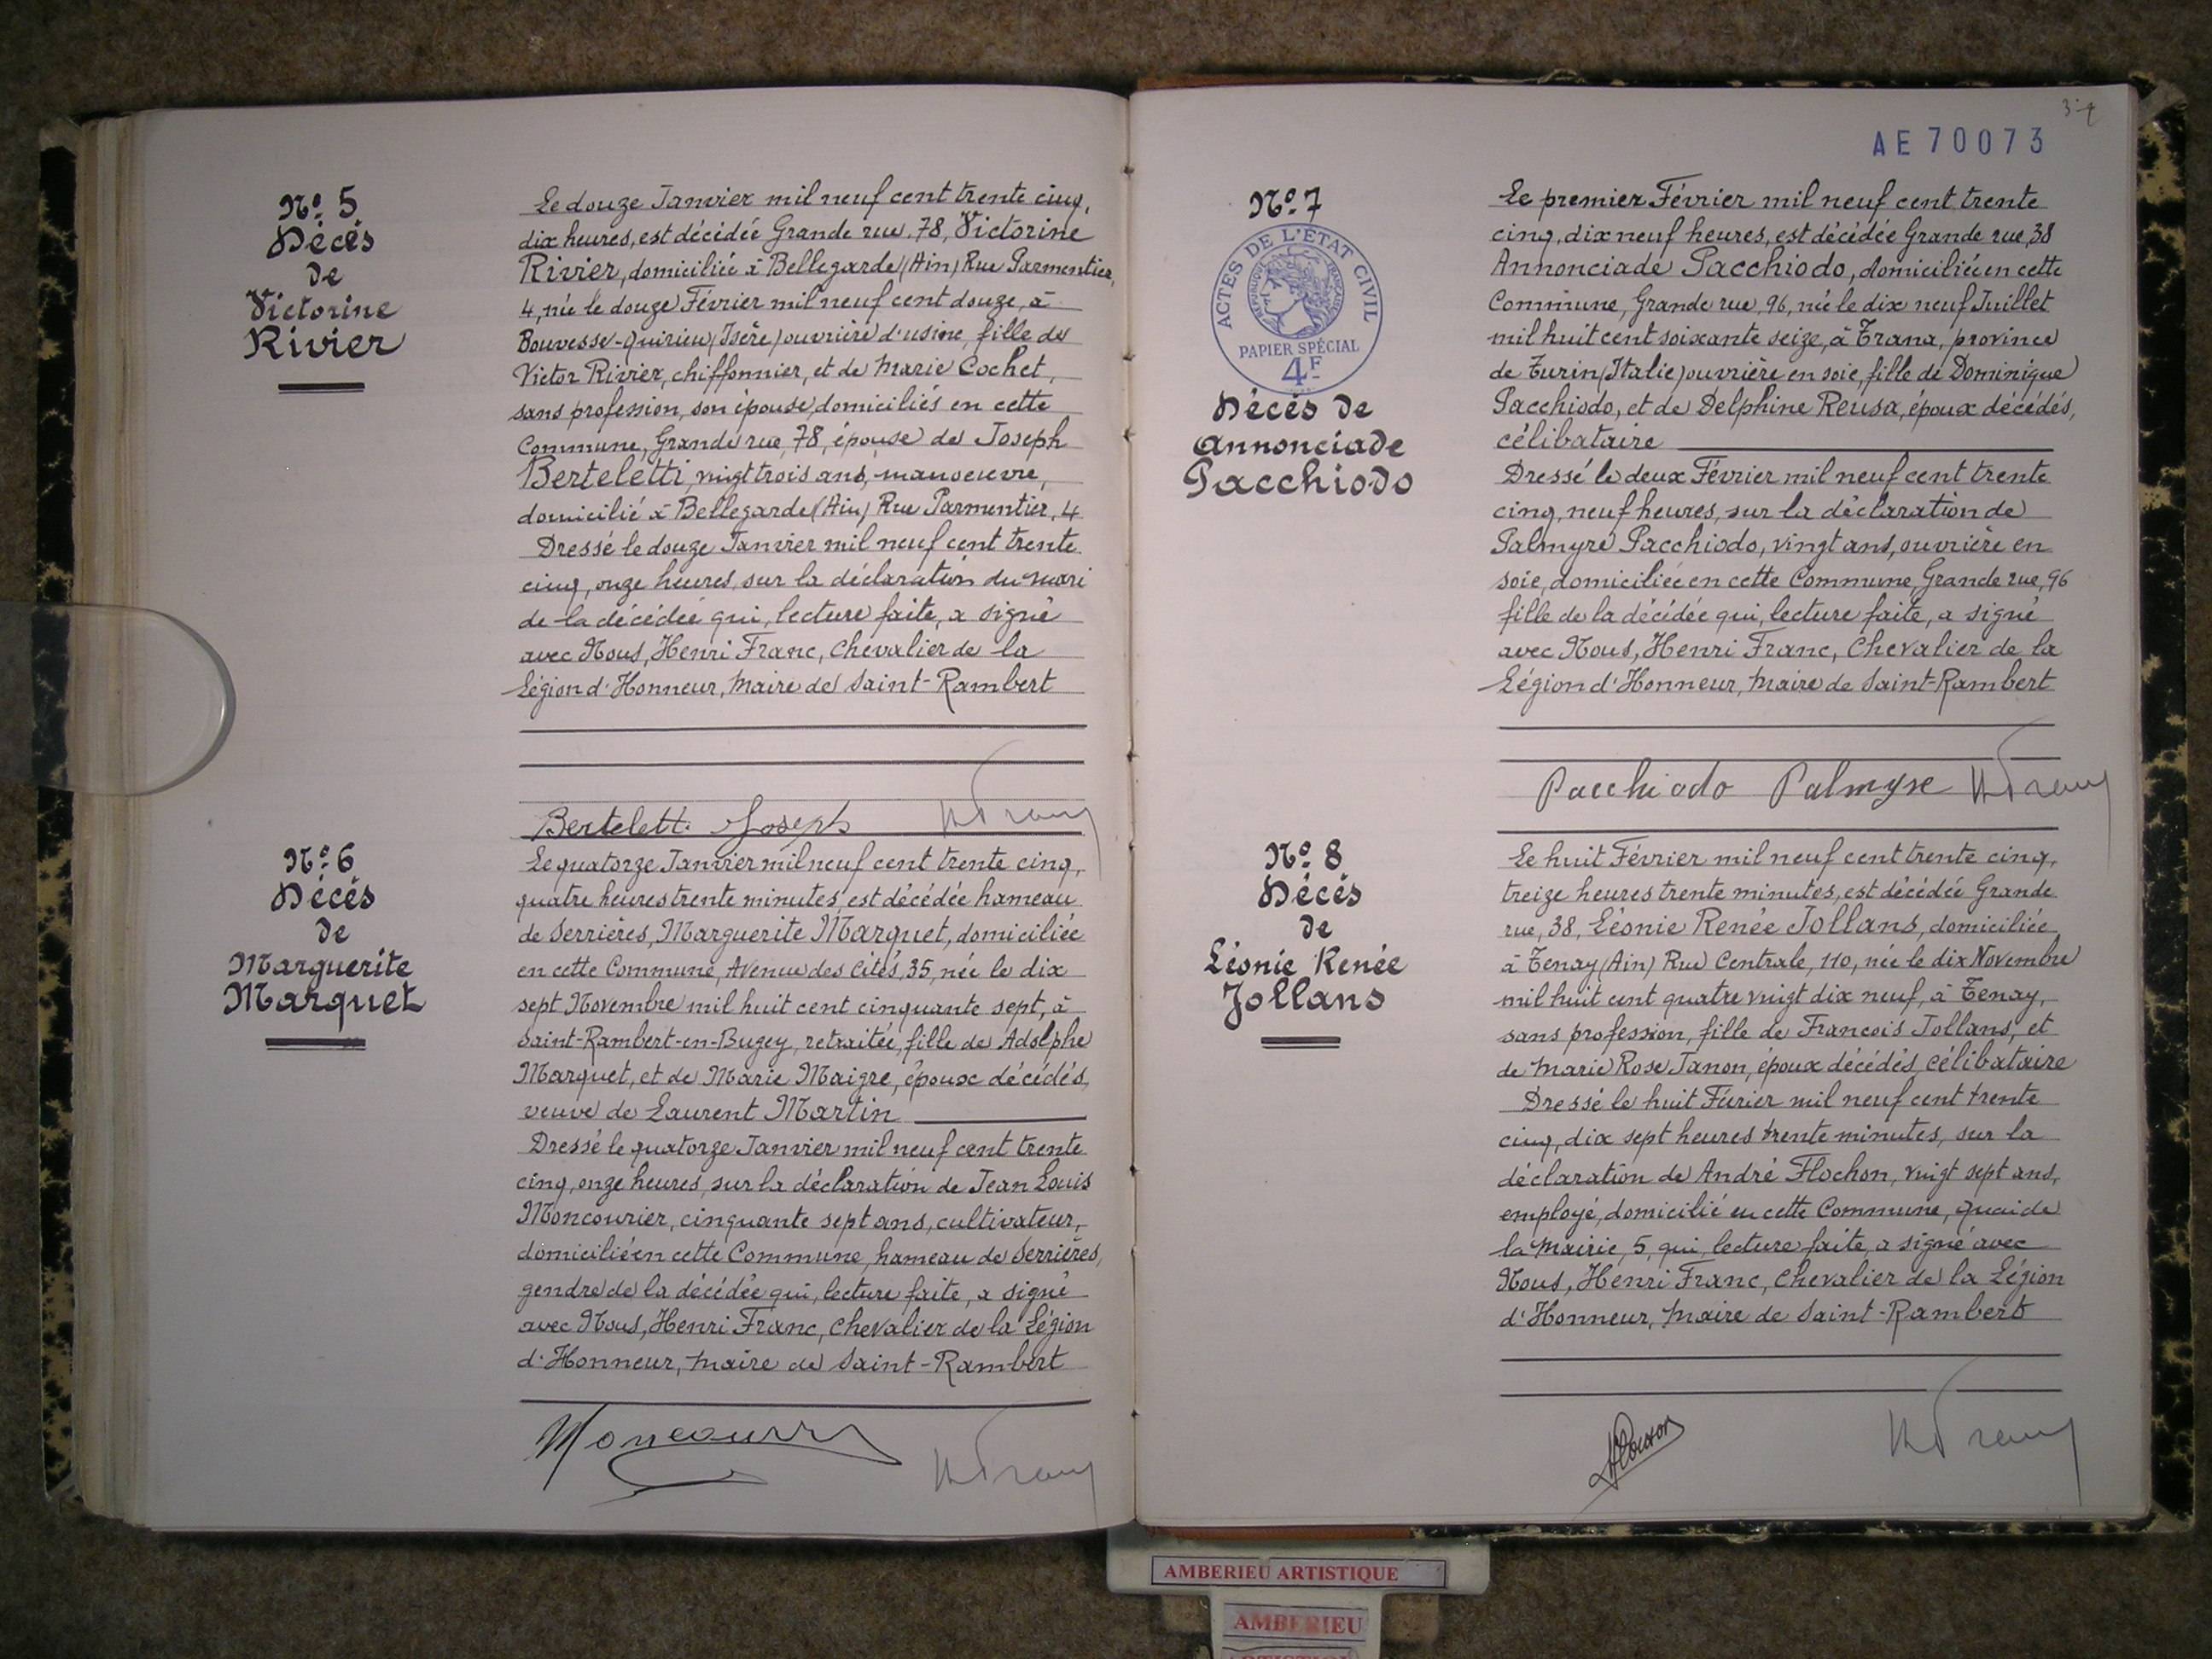 Nº 5
Décès
de
Victorine
Rivier
Le douze Janvier mil neuf cent trente cinq,
dix heures, est décédée Grande rue, 78, Victorine
Rivier, domiciliée à Bellegarde (Ain) Rue Parmentier,
4, née le douze Février mil neuf cent douze, à
Bouvesse-Quirieu (Isère) ouvrière d'usine, fille de
Victor Rivier, chiffonnier, et de Marie Cochet,
sans profession, son épouse, domiciliés en cette
Commune, Grande rue, 78, épouse de Joseph
Berteletti, vingt trois ans, manoeuvre,
domicilié à Bellegarde (Ain) Rue Parmentier, 4
Dressé le douze Janvier mil neuf cent trente
cinq, onze heures, sur la déclaration du mari
de la décédée qui, lecture faite, a signé
avec Nous, Henri Franc, Chevalier de la
Légion d'Honneur, Maire de Saint-Rambert
Bertelett. Joseph
Nº 6
Décès
de
Marguerite
Marquet
Le quatorze Janvier mil neuf cent trente cinq,
quatre heures trente minutes, est décédée hameau
de Serrières, Marguerite Marquet, domiciliée
en cette Commune, Avenue des Cités, 35, née le dix
sept Novembre mil huit cent cinquante sept, à
Saint-Rambert-en-Bugey, retraitée, fille de Adolphe
Marquet, et de Marie Maigre, époux décédés,
veuve de Laurent Martin
Dressé le quatorze Janvier mil neuf cent trente
cinq, onze heures, sur la déclaration de Jean Louis
Moncourier, cinquante sept ans, cultivateur,
domicilié en cette Commune, hameau de Serrières,
gendre de la décédée qui, lecture faite, a signé
avec Nous, Henri Franc, Chevalier de la Légion
d'Honneur, Maire de Saint-Rambert
AE 70073
Nº 7
ACTES DE L'ÉTAT CIVIL
RÉPUBLIQUE FRANÇAISE
PAPIER SPÉCIAL
4F
Décès de
Annonciade
Pacchiodo
Le premier Février mil neuf cent trente
cinq, dix neuf heures, est décédée Grande rue, 38
Annonciade Pacchiodo, domiciliée en cette
Commune, Grande rue, 96, née le dix neuf Juillet
mil huit cent soixante seize, à Trana, province
de Turin (Italie) ouvrière en soie, fille de Dominique
Pacchiodo, et de Delphine Reusa, époux décédés,
célibataire
Dressé le deux Février mil neuf cent trente
cinq, neuf heures, sur la déclaration de
Palmyre Pacchiodo, vingt ans, ouvrière en
soie, domiciliée en cette Commune, Grande rue, 96
fille de la décédée qui, lecture faite, a signé
avec Nous, Henri Franc, Chevalier de la
Légion d'Honneur, Maire de Saint-Rambert
Pacchiodo Palmyre
Nº 8
Décès
de
Léonie Renée
Jollans
Le huit Février mil neuf cent trente cinq,
treize heures trente minutes, est décédée Grande
rue, 38, Léonie Renée Jollans, domiciliée
à Tenay (Ain) Rue Centrale, 110, née le dix Novembre
mil huit cent quatre vingt dix neuf, à Tenay,
sans profession, fille de Francois Jollans, et
de Marie Rose Janon, époux décédés, célibataire
Dressé le huit Février mil neuf cent trente
cinq, dix sept heures trente minutes, sur la
déclaration de André Flochon, vingt sept ans,
employé, domicilié en cette Commune, Quai de
la Mairie, 5, qui, lecture faite, a signé avec
Nous, Henri Franc, Chevalier de la Légion
d'Honneur, Maire de Saint-Rambert
AMBERIEU ARTISTIQUE
AMBERIEU